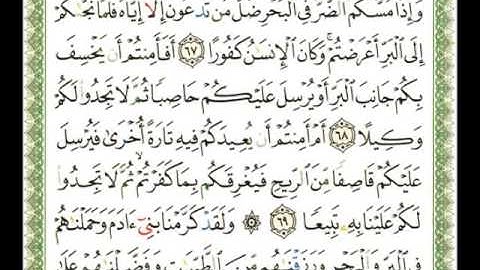 وَإِذَا مَسَّكُمُ الضُّرُّ فِي الْبَحْرِ ضَلَّ مَن تَدْعُونَ إِلَّا إِيَّاهُ فَلَمَّا نَجَّىٰكُمْ
إِلَى الْبَرِّ أَعْرَضْتُمْ ۚ وَكَانَ الْإِنسَٰنُ كَفُورًا ٦٧ أَفَأَمِنتُمْ أَن يَخْسِفَ
بِكُمْ جَانِبَ الْبَرِّ أَوْ يُرْسِلَ عَلَيْكُمْ حَاصِبًا ثُمَّ لَا تَجِدُوا لَكُمْ
وَكِيلًا ٦٨ أَمْ أَمِنتُمْ أَن يُعِيدَكُمْ فِيهِ تَارَةً أُخْرَىٰ فَيُرْسِلَ
عَلَيْكُمْ قَاصِفًا مِّنَ الرِّيحِ فَيُغْرِقَكُم بِمَا كَفَرْتُمْ ۙ ثُمَّ لَا تَجِدُوا
لَكُمْ عَلَيْنَا بِهِ تَبِيعًا ٦٩ ۞ وَلَقَدْ كَرَّمْنَا بَنِي ءَادَمَ وَحَمَلْنَٰهُمْ
فِي الْبَرِّ وَالْبَحْرِ وَرَزَقْنَٰهُم مِّنَ الطَّيِّبَٰتِ وَفَضَّلْنَٰهُمْ عَلَىٰ